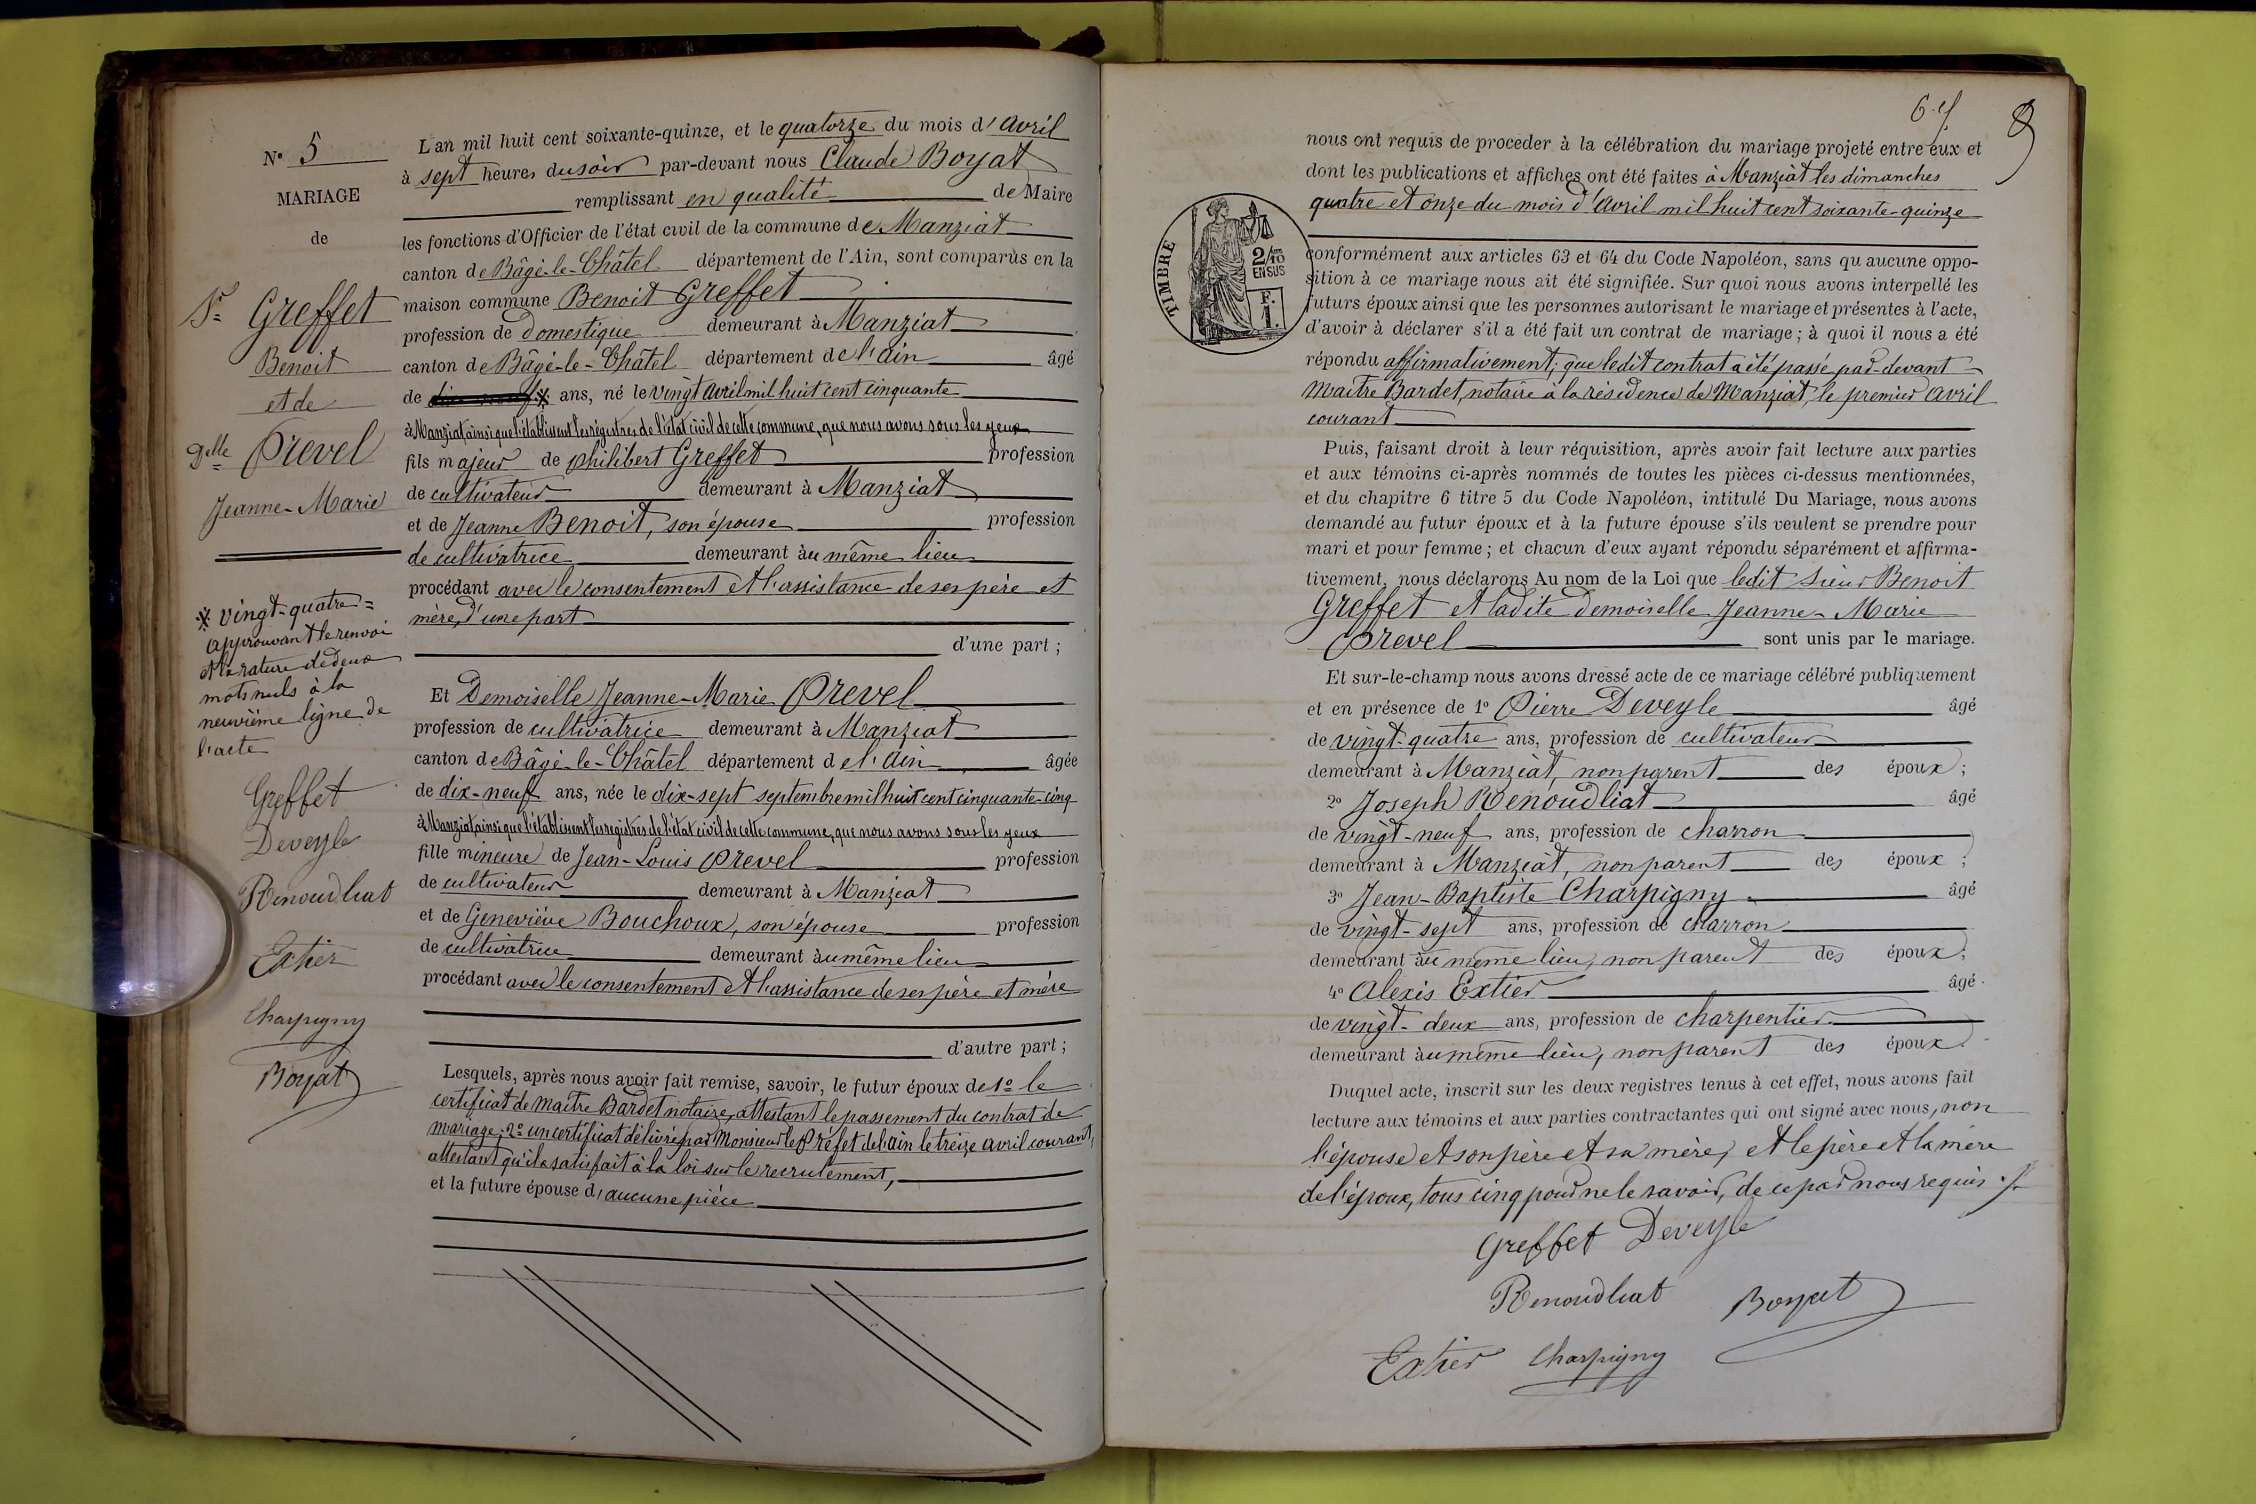 N° 5
MARIAGE
de
Sr Greffet
Benoit
et de
Delle Prevel
Jeanne-Marie
* vingt-quatre =
approuvant le renvoi
et la rature de deux
mots nuls à la
neuvième ligne de
l'acte
Greffet
Deveyle
Renoudliat
Extier
Charpigny
Boyat
L'an mil huit cent soixante-quinze, et le quatorze du mois d'avril
à sept heures du soir par-devant nous Claude Boyat
remplissant en qualité de Maire
les fonctions d'Officier de l'état civil de la commune de Manziat
canton de Bâgé-le-Châtel département de l'Ain, sont comparus en la
maison commune Benoit Greffet
profession de domestique demeurant à Manziat
canton de Bâgé-le-Châtel département de l'ain âgé
de * ans, né le vingt avril mil huit cent cinquante
à Manziat ainsi que l'établissent les registres de l'état civil de cette commune, que nous avons sous les yeux
fils majeur de philibert Greffet profession
de cultivateur demeurant à Manziat
et de Jeanne Benoit, son épouse profession
de cultivatrice demeurant au même lieu
procédant avec le consentement et l'assistance de ses père et
mère, d'une part
d'une part ;
Et Demoiselle Jeanne-Marie Prevel
profession de cultivatrice demeurant à Manziat
canton de Bâgé-le-Châtel département de l'Ain âgée
de dix-neuf ans, née le dix-sept septembre mil huit cent cinquante-cinq
à Manziat ainsi que l'établissent les registres de l'état civil de cette commune, que nous avons sous les yeux
fille mineure de Jean-Louis Prevel profession
de cultivateur demeurant à Manziat
et de Geneviève Bouchoux, son épouse profession
de cultivatrice demeurant au même lieu
procédant avec le consentement et l'assistance de ses père et mère
d'autre part ;
Lesquels, après nous avoir fait remise, savoir, le futur époux de 1° le
certificat de Maître Bardet notaire, attestant le passement du contrat de
mariage ; 2° un certificat délivré par Monsieur le Préfet de l'ain le treize avril courant,
attestant qu'il a satisfait à la loi sur le recrutement,
et la future épouse d'aucune pièce
nous ont requis de procéder à la célébration du mariage projeté entre eux et
dont les publications et affiches ont été faites à Manziat les dimanches
quatre et onze du mois d'avril mil huit cent soixante-quinze
TIMBRE
2/10
EN SUS
F.
1.
conformément aux articles 63 et 64 du Code Napoléon, sans qu'aucune oppo-
sition à ce mariage nous ait été signifiée. Sur quoi nous avons interpellé les
futurs époux ainsi que les personnes autorisant le mariage et présentes à l'acte,
d'avoir à déclarer s'il a été fait un contrat de mariage ; à quoi il nous a été
répondu affirmativement ; que ledit contrat a été passé par-devant
Maître Bardet, notaire à la résidence de Manziat, le premier avril
courant
Puis, faisant droit à leur réquisition, après avoir fait lecture aux parties
et aux témoins ci-après nommés de toutes les pièces ci-dessus mentionnées,
et du chapitre 6 titre 5 du Code Napoléon, intitulé Du Mariage, nous avons
demandé au futur époux et à la future épouse s'ils veulent se prendre pour
mari et pour femme ; et chacun d'eux ayant répondu séparément et affirma-
tivement, nous déclarons Au nom de la Loi que ledit sieur Benoit
Greffet et ladite demoiselle Jeanne-Marie
Prevel sont unis par le mariage.
Et sur-le-champ nous avons dressé acte de ce mariage célébré publiquement
et en présence de 1° Pierre Deveyle âgé
de vingt-quatre ans, profession de cultivateur
demeurant à Manziat, non parent des époux ;
2° Joseph Renoudliat âgé
de vingt-neuf ans, profession de charron
demeurant à Manziat, non parent des époux ;
3° Jean-Baptiste Charpigny âgé
de vingt-sept ans, profession de charron
demeurant au même lieu, non parent des époux ;
4° Alexis Extier âgé
de vingt-deux ans, profession de charpentier
demeurant au même lieu, non parent des époux.
Duquel acte, inscrit sur les deux registres tenus à cet effet, nous avons fait
lecture aux témoins et aux parties contractantes qui ont signé avec nous, non
l'épouse et son père et sa mère, et le père et la mère
de l'époux, tous cinq pour ne le savoir, de ce par nous requis.
Greffet Deveyle
Renoudliat Boyat
Extier Charpigny